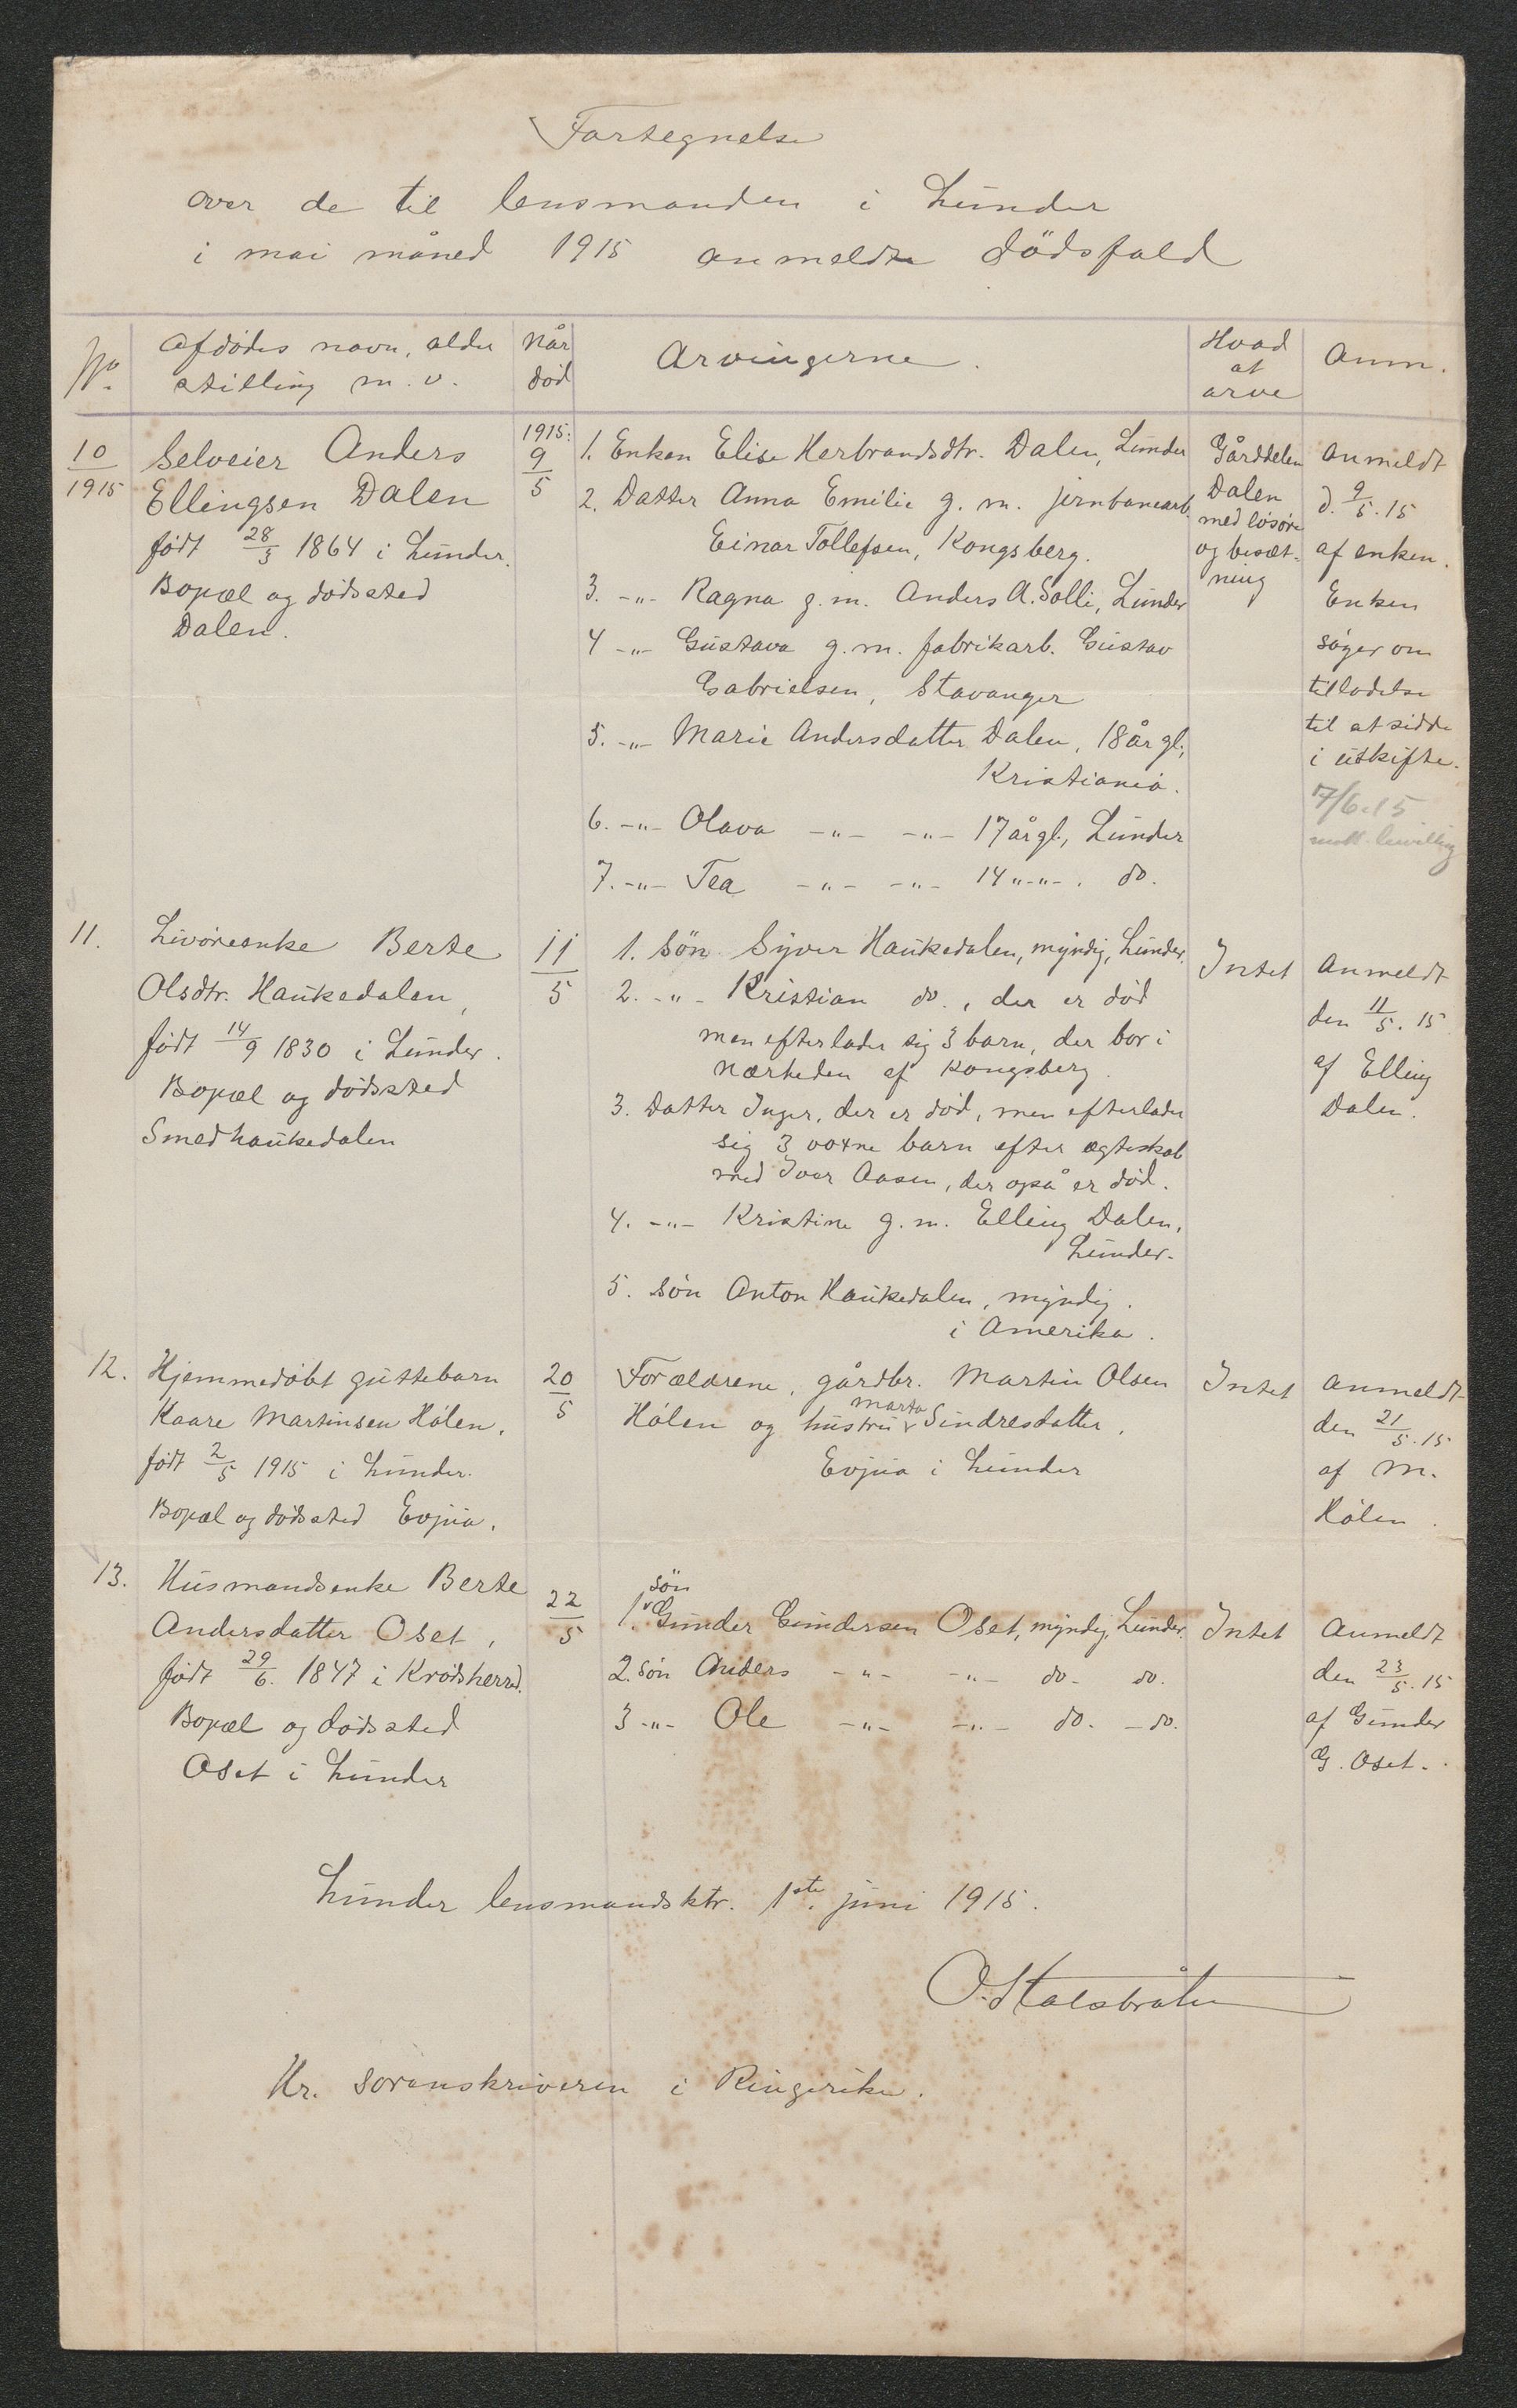 Fortegnelse
over de til lensmanden i Lunder
i mai måned 1915 anmeldte dödsfald
No.
Afdødes navn, alder
stilling m. v.
Når
død
Arvingerne.
Hvad
at
arve
Anm.
10
1915
Selveier Anders
Ellingsen Dalen
født 28/5 1864 i Lunder.
Bopæl og dødssted
Dalen.
1915:
9
5
1. Enken Elise Herbrandsdtr. Dalen, Lunder
2. Datter Anna Emilie g. m. jernbanearb.
Einar Tollefsen, Kongsberg.
3. -"- Ragna g. m. Anders A. Solli, Lunder
4 -"- Gustava g. m. fabrikarb. Gustav
Gabrielsen, Stavanger
5. -"- Marie Andersdatter Dalen, 18 år gl.,
Kristiania.
6. -"- Olava -"- -"- 17 år gl., Lunder
7. -"- Tea -"- -"- 14 "-"-. do.
Gårddelen
Dalen
med løsøre
og besæt-
ning
Anmeldt
d. 9/5. 15
af enken.
Enken
søger om
tilladelse
til at sidde
i uskifte.
7/6.15
11.
Livøreenke Berte
Olsdtr. Haukedalen,
født 14/9 1830 i Lunder.
Bopæl og dødssted
Smedhaukedalen
11
5
1. Søn Syver Haukedalen, myndig, Lunder.
2. -"- Kristian do., der er død
men efterlader sig 3 barn, der bor i
nærheden af Kongsberg.
3. Datter Inger, der er død, men efterlader
sig 3 voxne barn efter ægteskab
med Iver Aasen, der også er død.
4. -"- Kristine g. m. Elling Dalen,
Lunder.
5. Søn Anton Haukedalen, myndig.
i Amerika.
Intet
Anmeldt
den 11/5. 15
af Elling
Dalen.
12.
Hjemmedøbt guttebarn
Kaare Martinsen Hólen,
født 2/5 1915 i Lunder.
Bopæl og dødssted Evjua.
20
5
Forældrene, gårdbr. Martin Olsen
Hólen og hustru Marta Sindresdatter,
Evjua i Lunder
Intet
Anmeldt
den 21/5. 15
af M.
Hólen.
13.
Husmandsenke Berte
Andersdatter Oset,
født 29/6. 1847 i Krødsherred.
Bopæl og dødssted
Oset i Lunder
22
5
1. søn Gunder Gundersen Oset, myndig, Lunder.
2. søn Anders -"- -"- do- do.
3 -"- Ole -"- -"- do- - do.
Intet
Anmeldt
den 23/5. 15
af Gunder
G. Oset.
Lunder lensmandsktr. 1ste juni 1915.
O. Stalsbråten
Hr. sorenskriveren i Ringerike.